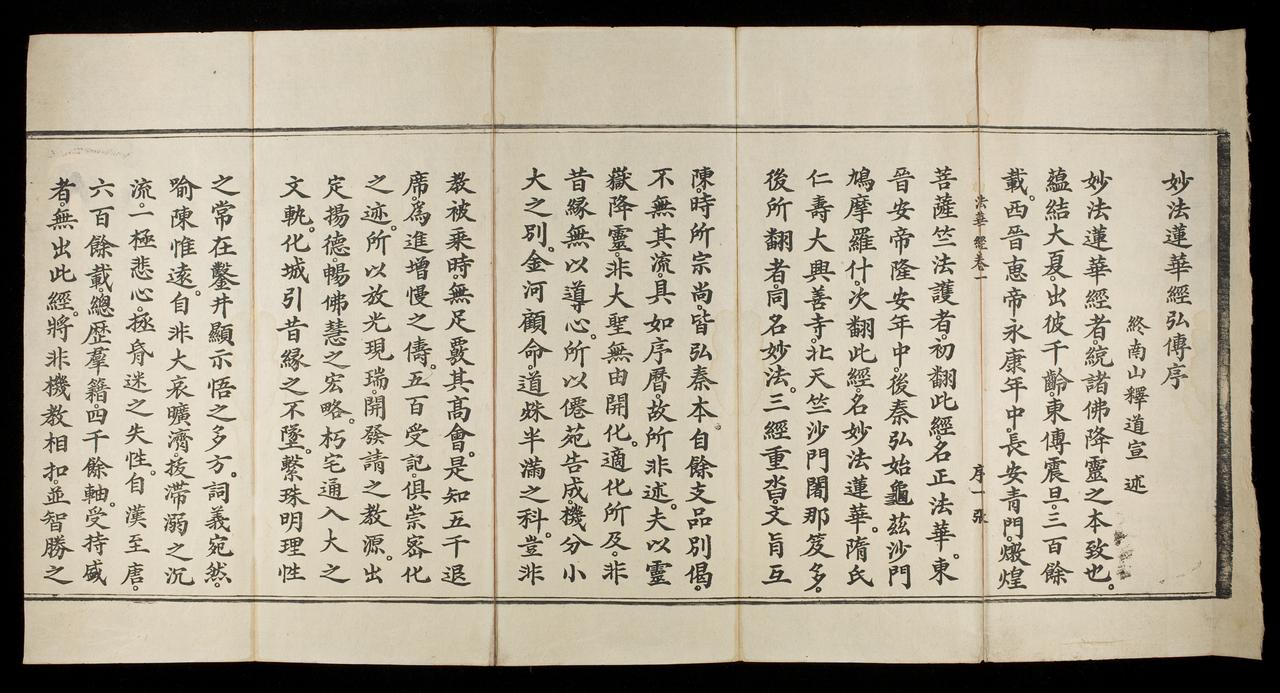 妙法蓮華經弘傳序
終南山釋道宣 述
妙法蓮華經者。統諸佛降靈之本致也。
蘊結大夏。出彼千齡。東傳震旦。三百餘
載。西晉惠帝永康年中。長安青門。燉煌
法華經卷一 序一張
菩薩竺法護者。初翻此經。名正法華。東
晉安帝隆安年中。後秦弘始。龜茲沙門
鳩摩羅什。次翻此經。名妙法蓮華。隋氏
仁壽大興善寺。北天竺沙門闍那笈多。
後所翻者。同名妙法。三經重沓。文旨互
陳。時所宗尚。皆弘秦本。自餘支品別偈。
不無其流。具如序曆。故所非述。夫以靈
嶽降靈。非大聖無由開化。適化所及。非
昔緣無以導心。所以僊苑告成。機分小
大之別。金河顧命。道殊半滿之科。豈非
教被乘時。無足覈其高會。是知五千退
席。爲進增慢之儔。五百受記。俱崇密化
之迹。所以放光現瑞。開發請之教源。出
定揚德。暢佛慧之宏略。朽宅通入大之
文軌。化城引昔緣之不墜。繫珠明理性
之常在。鑿井顯示悟之多方。詞義宛然。
喻陳惟遠。自非大哀曠濟。拔滯溺之沉
流。一極悲心。拯昏迷之失性。自漢至唐。
六百餘載。總歷羣籍。四千餘軸。受持盛
者。無出此經。將非機教相扣。並智勝之